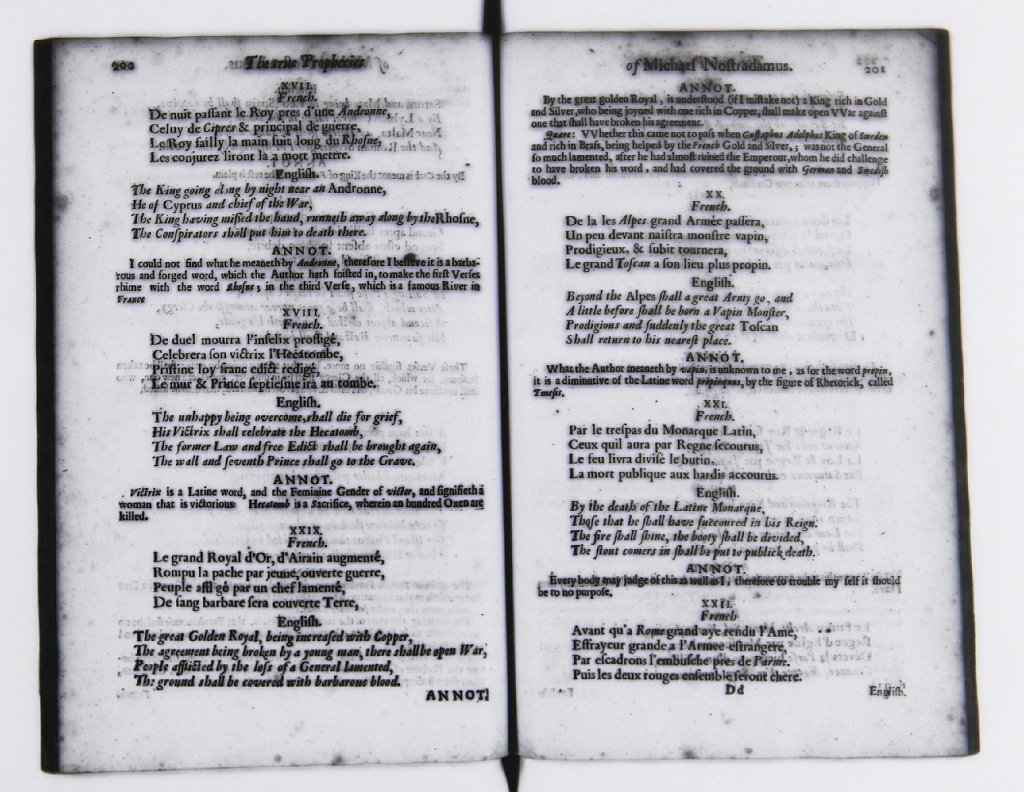 200 The true Prophecies
XVII.
French.
De nuit passant le Roy pres d'une Andronne,
Celuy de Cipres & principal de guerre,
Le Roy failly la main fuit long du Rhosne,
Les conjurez liront la a mort mettre.
English.
The King going along by night near an Andronne,
He of Cyprus and chief of the War,
The King having missed the hand, runneth away along by the Rhosne,
The Conspirators shall put him to death there.
ANNOT.
I could not find what he meaneth by Andronne, therefore I believe it is a barba-
rous and forged word, which the Author hath foisted in, to make the first Verses
rhime with the word Rhosne; in the third Verse, which is a famous River in
France
XVIII.
French.
De duel mourra l'infelix profligé,
Celebrera son victrix l'Hecatombe,
Pristine loy franc edict redigé,
Le mur & Prince septiesme ira au tombe.
English.
The unhappy being overcome, shall die for grief,
His Victrix shall celebrate the Hecatomb,
The former Law and free Edict shall be brought again,
The wall and seventh Prince shall go to the Grave.
ANNOT.
Victrix is a Latine word, and the Feminine Gender of victor, and signifieth a
woman that is victorious: Hecatomb is a Sacrifice, wherein an hundred Oxen are
killed.
XXIX.
French.
Le grand Royal d'Or, d'Airain augmenté,
Rompu la pache par jeune, ouverte guerre,
Peuple affligé par un chef lamenté,
De sang barbare sera couverte Terre,
English.
The great Golden Royal, being increased with Copper,
The agreement being broken by a young man, there shall be open War,
People afflicted by the loss of a General lamented,
The ground shall be covered with barbarous blood.
ANNOT.
of Michael Nostradamus. 201
ANNOT.
By the great golden Royal, is understood (if I mistake not) a King rich in Gold
and Silver, who being joyned with one rich in Copper, shall make open VVar against
one that shall have broken his agreement.
Quære: VVhether this came not to pass when Gustaphus Adolphus King of Sweden
and rich in Brass, being helped by the French Gold and Silver, was not the General
so much lamented, after he had almost ruined the Emperour, whom he did challenge
to have broken his word, and had covered the ground with German and Swedish
blood.
XX.
French.
De la les Alpes grand Armée passera,
Un peu devant naistra monstre vapin,
Prodigieux, & subit tournera,
Le grand Toscan a son lieu plus propin.
English.
Beyond the Alpes shall a great Army go, and
A little before shall be born a Vapin Monster,
Prodigious and suddenly the great Toscan
Shall return to his nearest place.
ANNOT.
What the Author meaneth by vapin, is unknown to me, as for the word propin,
it is a diminutive of the Latine word propinquus, by the figure of Rhetorick, called
Tmesis.
XXI.
French.
Par le trespas du Monarque Latin,
Ceux quil aura par Regne secourus,
Le feu livra divisé le butin,
La mort publique aux hardis accourus.
English.
By the death of the Latine Monarque,
Those that he shall have succoured in his Reign.
The fire shall shine, the booty shall be divided,
The stout comers in shall be put to publick death.
ANNOT.
Every body may judge of this as well as I, therefore to trouble my self it should
be to no purpose.
XXII.
French
Avant qu'a Rome grand aye rendu l'Ame,
Effrayeur grande a l'Armee estrangere,
Par escadrons l'embusche pres de Parme.
Puis les deux rouges ensemble feront chere.
Dd English.